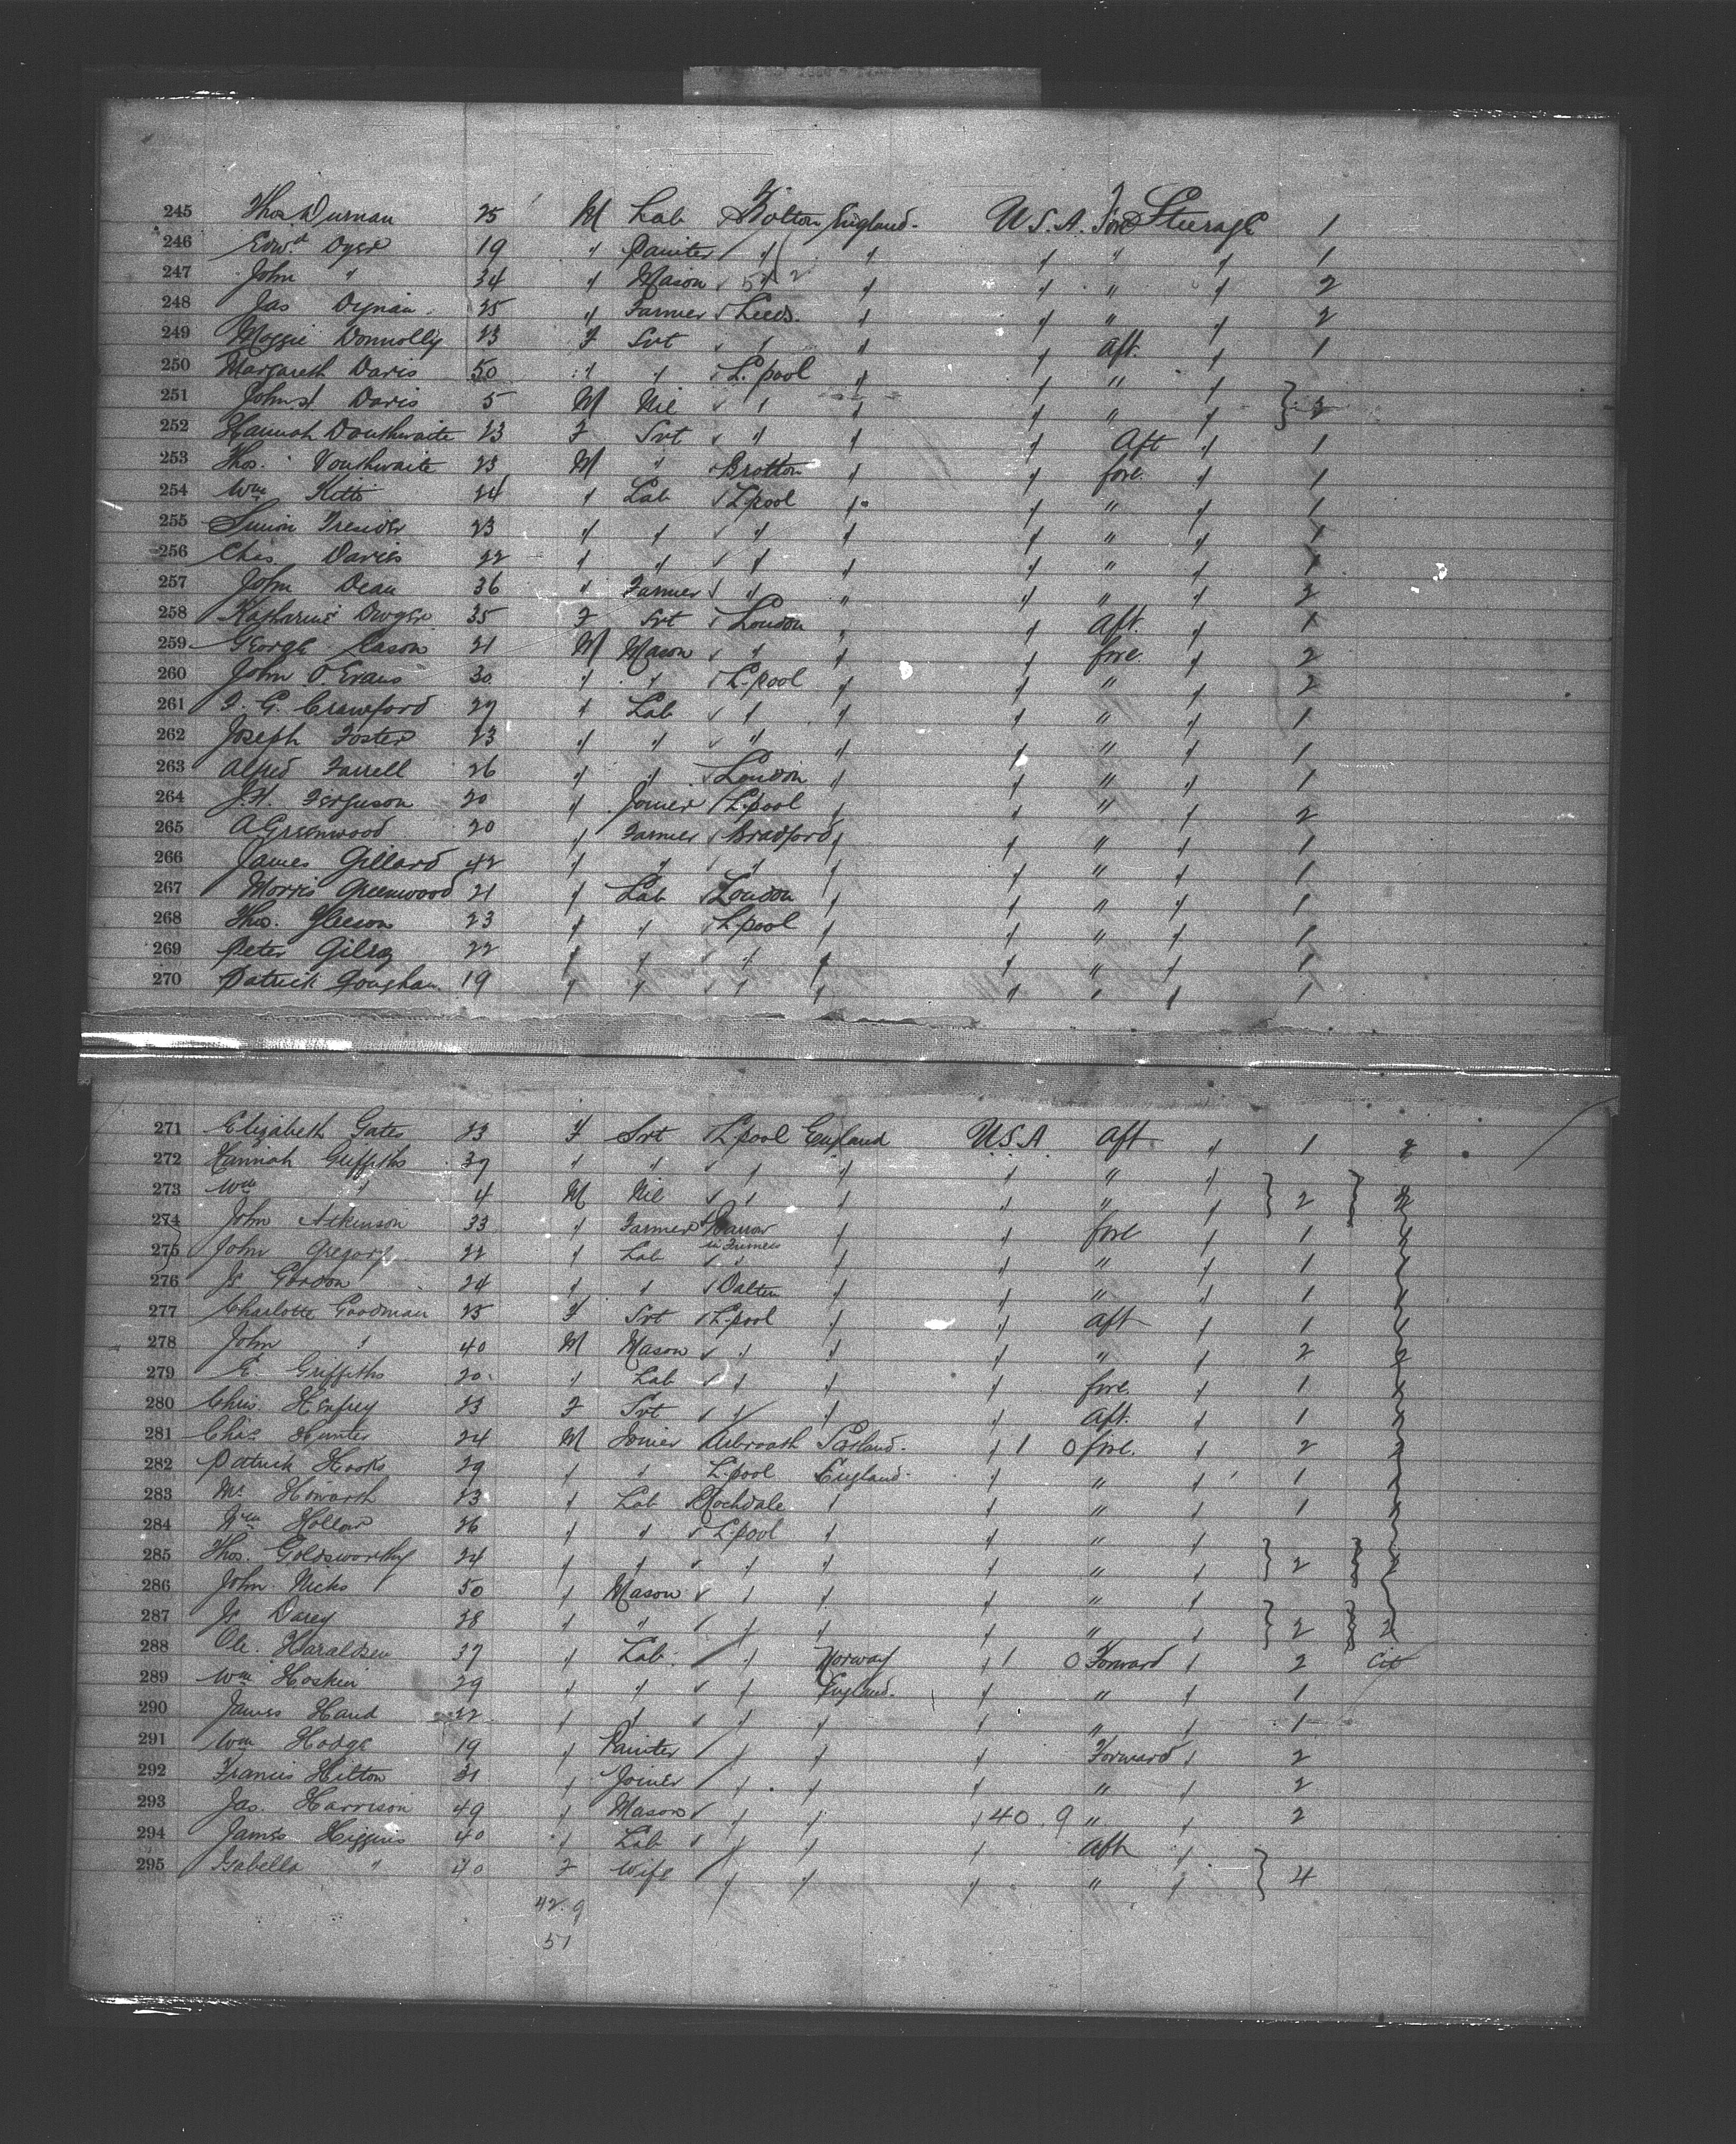 245 Thos Durnan 25 M Lab Bolton England. U.S.A. Fore Steerage 1
246 Edwd Dyer 19 " Painter " " " " " 1
247 John " 34 " Mason " " " " " 2
248 Jas 25 " Farmer Leeds. " " " " 2
249 Maggie Donnolly 23 F Svt " " " Aft. " 1
250 Margareth Davis 50 " " L.pool " " " "
251 Davis 5 M Nil " " " " "
252 Hannah Douthwaite 23 F Svt " " " Aft " 1
253 Thos. Douthwaite 23 M " Brotton " " fore. " 1
254 Wm Kitto 24 " Lab L.pool " " " " 1
255 Simon 23 " " " " " " " 1
256 Chas Davies 22 " " " " " " " 1
257 John Dean 36 " Farmer " " " " " 2
258 Katharine Dwyer 35 F Svt London " " Aft. " 1
259 George Eason 21 M Mason " " " fore " 2
260 John O Evans 30 " " L.pool " " " " 2
261 G. Crawford 27 " Lab " " " " " 1
262 Joseph Foster 23 " " " " " " " 1
263 Alfred Farrell 26 " " London " " " " 1
264 J.H. Ferguson 20 " Joiner L.pool " " " " 2
265 A Greenwood 20 " Farmer Bradford " " " " 1
266 James Gillard 42 " " " " " " " 1
267 Morris Greenwood 21 " Lab London " " " " 1
268 Thos. Gleeson 23 " " L.pool " " " " 1
269 Peter Gilroy 22 " " " " " " " 1
270 Patrick Goughan 19 " " " " " " " 1
271 Elizabeth Gates 23 F Svt L.pool England U.S.A Aft " 1
272 Hannah Griffiths 37 " " " " " " "
273 Wm " 4 M Nil " " " " " 2
274 John Atkinson 33 " Farmer Barrow in Furness " " fore " 1
275 John Gregory 22 " Lab " " " " " 1
276 Js Gordon 24 " " Dalton " " " " 1
277 Charlotte Goodman 25 F Svt L.pool " " aft " 1
278 John " 40 M Mason " " " " " 2 2
279 E. Griffiths 20 " Lab " " " fore " 1
280 Chris. Henfrey 23 F Svt " " " Aft. " 1
281 Chas Hunter 24 M Joiner Arbroath " 1 0 fore. " 2 2
282 Patrick Hooks 29 " " L.pool England. " " " 1
283 Howarth 23 " Lab Rochdale " " " " 1
284 Wm Hollow 26 " " L.pool " " " "
285 Thos. Goldsworthy 24 " " " " " " " 2
286 John Nicks 50 " Mason " " " " "
287 Js Darey 28 " " " " " " " 2 2
288 Ole. Haraldsen 37 " Lab " Norway " 1 0 Forward " 2
289 Wm Hoskin 29 " " " England. " " " 1
290 James Hand 22 " " " " " " " 1
291 Wm Hodge 19 " Painter " " " Forward " 2
292 Francis Hilton 31 " Joiner " " " " " 2
293 Jas. Harrison 49 " Mason " " " 40. 9 " " 2
294 James Higgins 40 " Lab " " " Aft "
295 Isabella " 40 F Wife " " " " " 4
42. 9
51